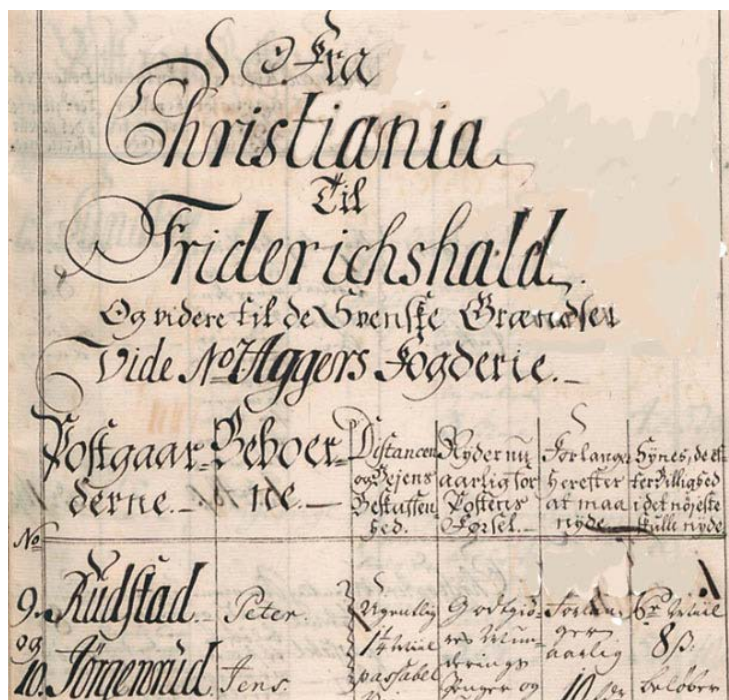 Fra
Christiania
Til
Friderichshald.
Og videre til de Svenske Grændser
Vide No. 7 Aggers Fogderie.
Postgaar-
derne.
Beboer-
ne.
Distancen
og Vejens
Beskaffen-
hed.
Nyder nu
aarlig for
Postens
Førsel.
Forlange
herefter
at maa
nyde
Synes, de ef-
ter Billighed
i det nøjeste
skulle nyde
No
9. Rudstad Peter.
og
10. Jörgenrud Jens.
1 1/4 Miil
passabel
Forlan-
ger
aarlig
10
Miil
8 ß.
beløber